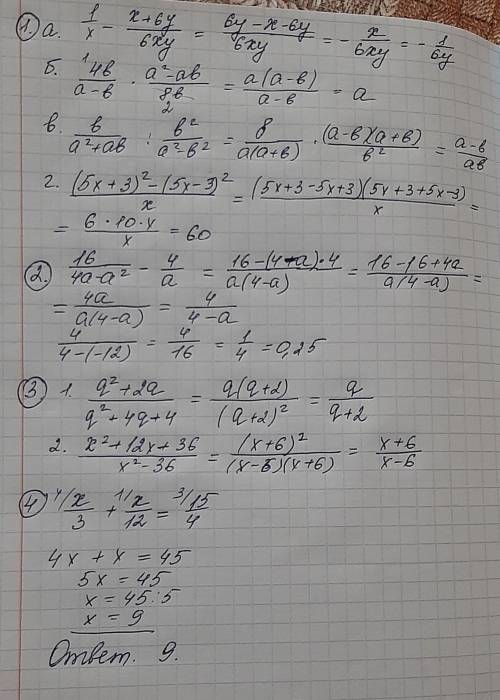 1. а. 1/x - (x+6y)/(6xy) = (6y-x-6y)/(6xy) = -x/(6xy) = -1/(6y)
б. 4в/(a-в) · (a²-aв)/(8в) 1 2 = a(a-в)/(a-в) = a
в. в/(a²+aв) : в²/(a²-в²) = 8/(a(a+в)) · (a-в)(a+в)/в² = (a-в)/(aв)
г. ((5x+3)²-(5x-3)²)/x = (5x+3-5x+3)(5x+3+5x-3)/x =
= (6·10·x)/x = 60
2. 16/(4a-a²) - 4/a = (16-(4-a)·4)/(a(4-a)) = (16-16+4a)/(a(4-a)) =
= 4a/(a(4-a)) = 4/(4-a)
4/(4-(-12)) = 4/16 = 1/4 = 0,25
3 1. (q²+2q)/(q²+4q+4) = q(q+2)/(q+2)² = q/(q+2)
2. (x²+12x+36)/(x²-36) = (x+6)²/((x-6)(x+6)) = (x+6)/(x-6)
4 4/ x/3 + 1/ x/12 = 3/ 15/4
4x + x = 45
5x = 45
x = 45:5
x = 9
Ответ. 9.